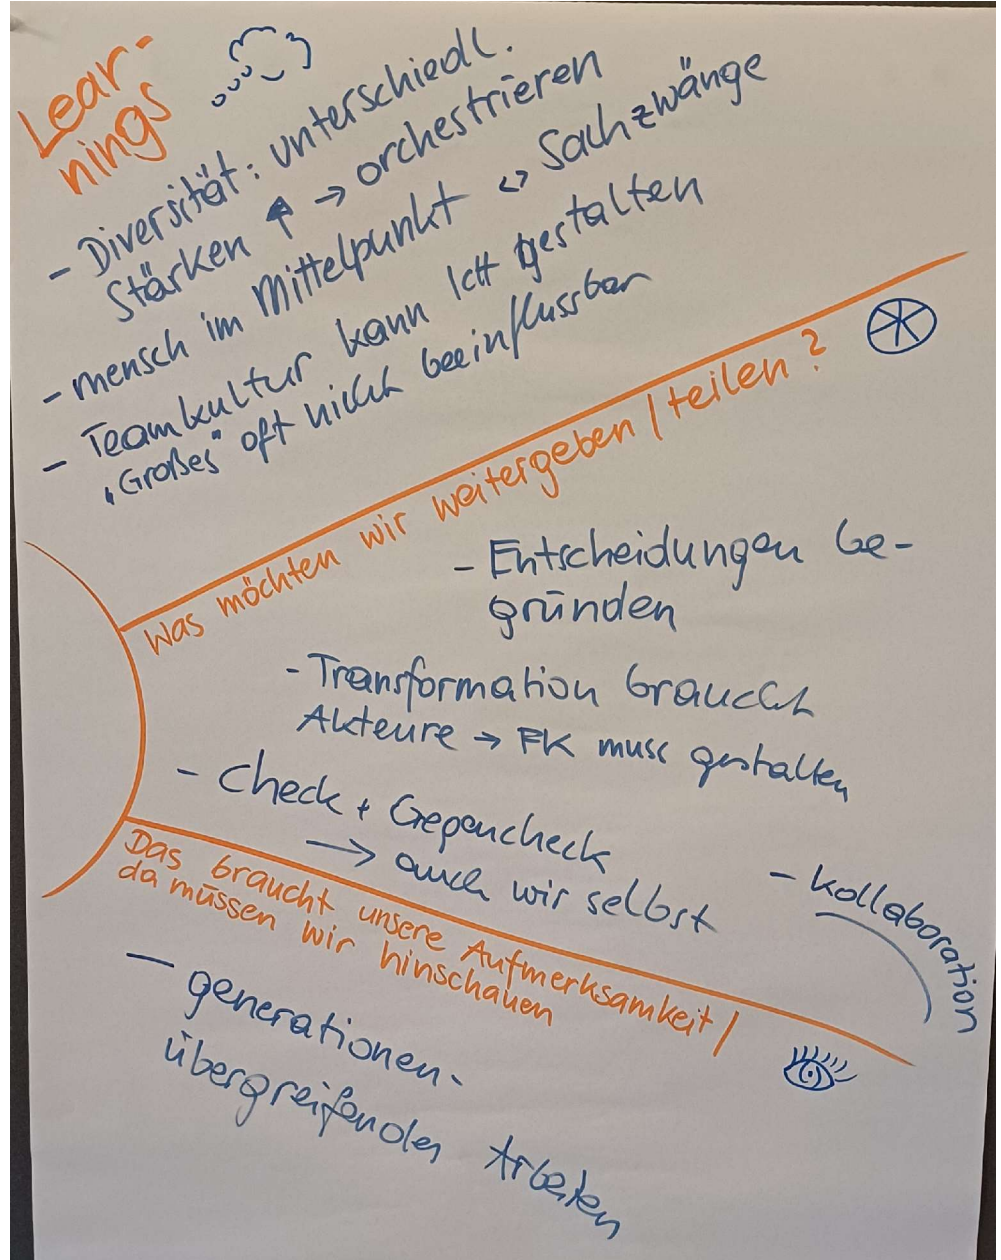 Lear-
nings
- Diversität: unterschiedl.
Stärken ↑ → orchestrieren
- mensch im Mittelpunkt <> Sachzwänge
- Teamkultur kann Ich gestalten
„Großes" oft nicht beeinflussbar
Was möchten wir weitergeben / teilen?
- Entscheidungen be-
gründen
- Transformation braucht
Akteure → FK muss gestalten
- Check + Gegencheck
→ auch wir selbst
- Kollaboration
Das braucht unsere Aufmerksamkeit /
da müssen wir hinschauen
- generationen-
übergreifendes Arbeiten